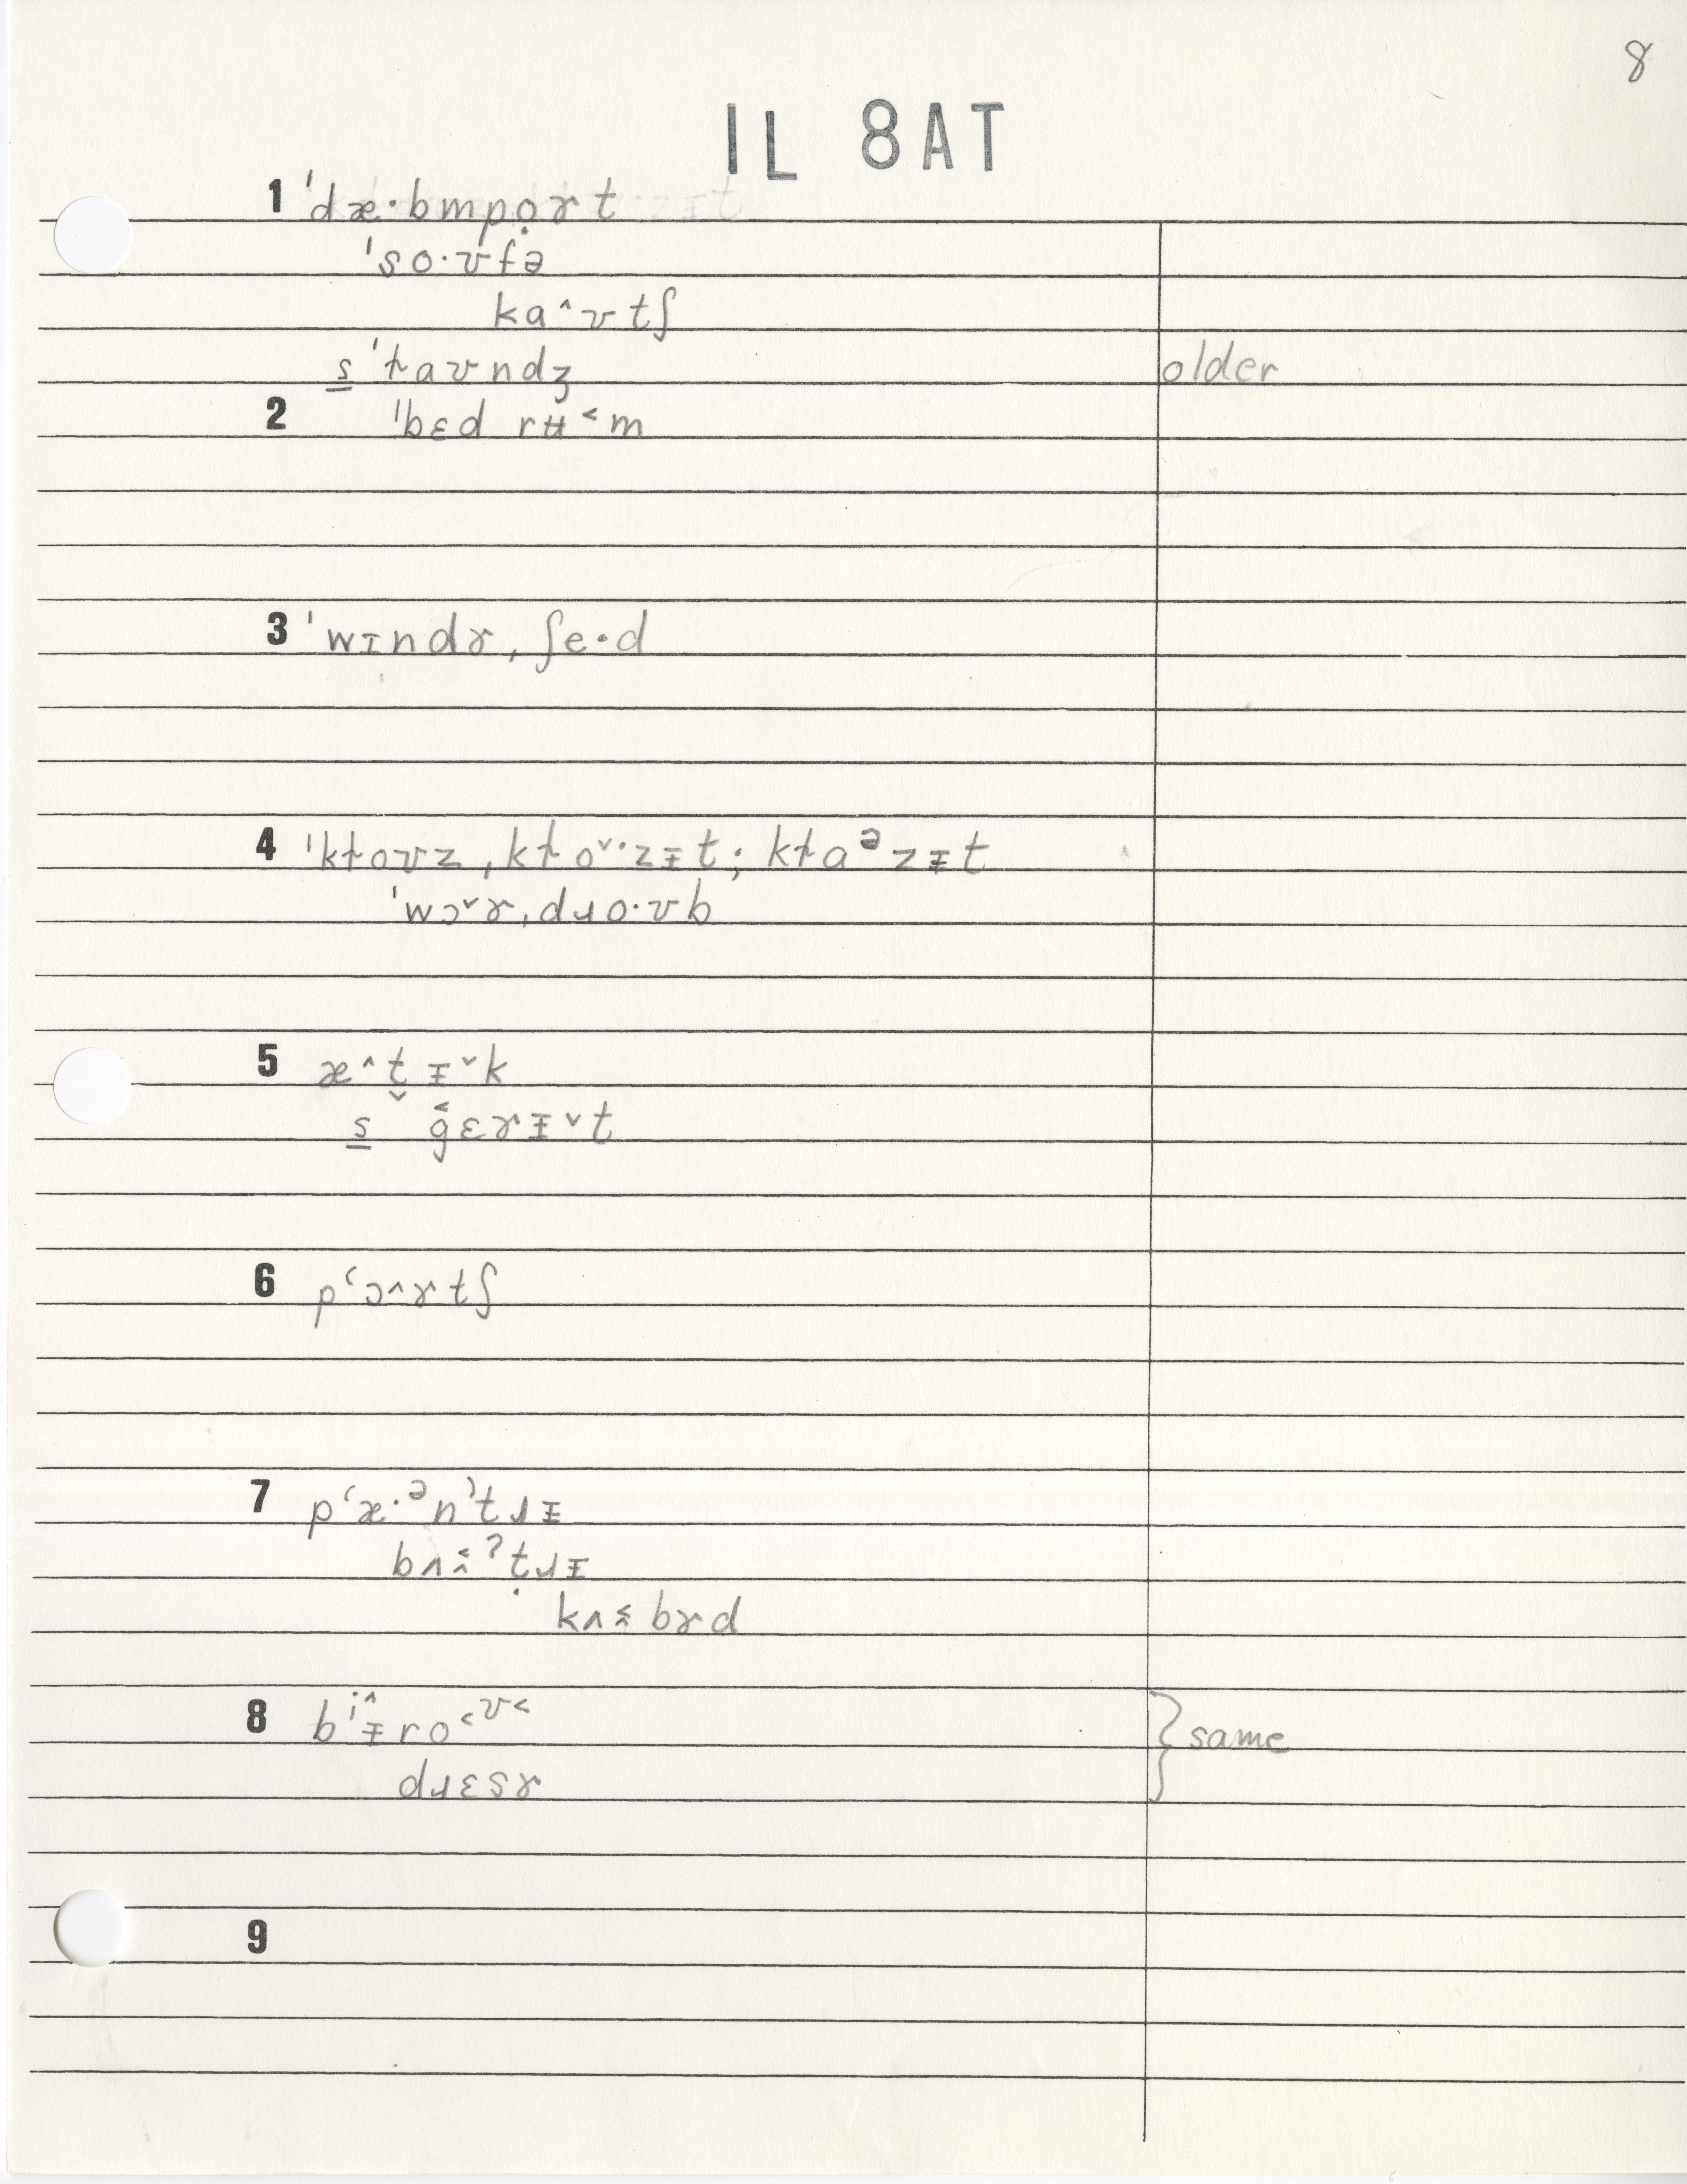 8
IL 8AT
1 ˈdæ·bmpọɤt
ˈso·ʊfə
ka^ʊtʃ
s̲ ˈɫaʊndʒ older
2 ˈbɛd rʉ˂m
3 ˈwɪndɤˌʃe·d
4 ˈkɫoʊz ˌkɫo˅·zᵻt; kɫaᵊzᵻt
ˈwɔ˅ɤˌdɹo·ʊb
5 æ^t̬ᵻ˅k
s̲ g� 	ɛɤᵻ˅t
6 pʻɔ^ɤtʃ
7 pʻæ·ᵊnʼtɹᵻ
bʌ˂^ˀṭɹᵻ
kʌ˂^bɤd
8 bⁱ^ᵻro˂ᶷ˂ } same
dɹɛsɤ
9